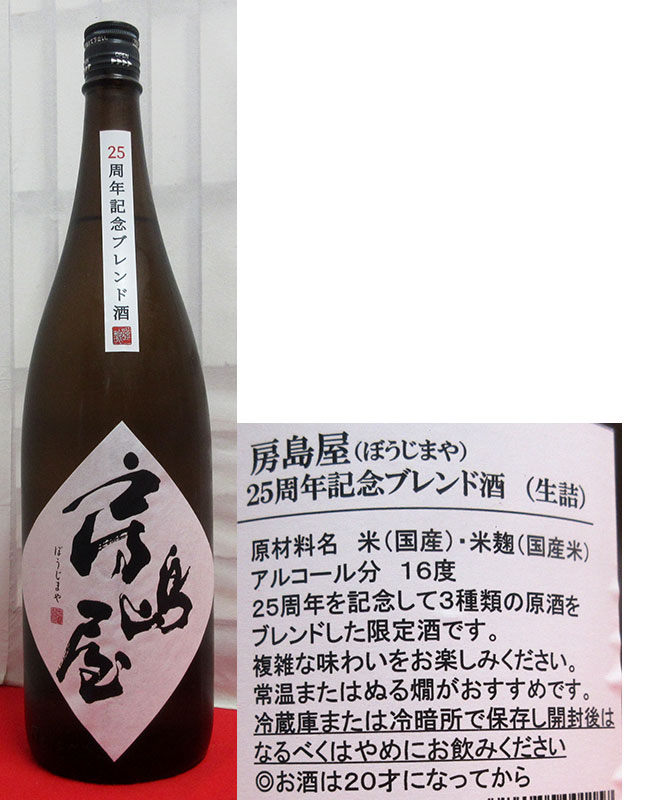 OPEN
25周年記念ブレンド酒
房島屋
ぼうじまや
房島屋(ぼうじまや)
25周年記念ブレンド酒 (生詰)
原材料名 米(国産)・米麹(国産米)
アルコール分 16度
25周年を記念して3種類の原酒を
ブレンドした限定酒です。
複雑な味わいをお楽しみください。
常温またはぬる燗がおすすめです。
冷蔵庫または冷暗所で保存し開封後は
なるべくはやめにお飲みください
◎お酒は20才になってから